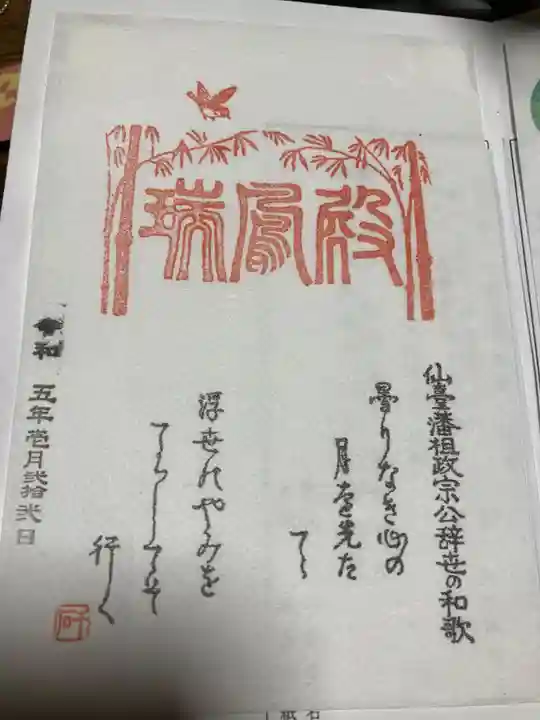 瑞鳳殿
仙臺藩祖政宗公辞世の和歌
曇りなき心の
月を先た
てゝ
浮世のやみを
てらしてそ
行く
令和五年壱月弐拾弐日